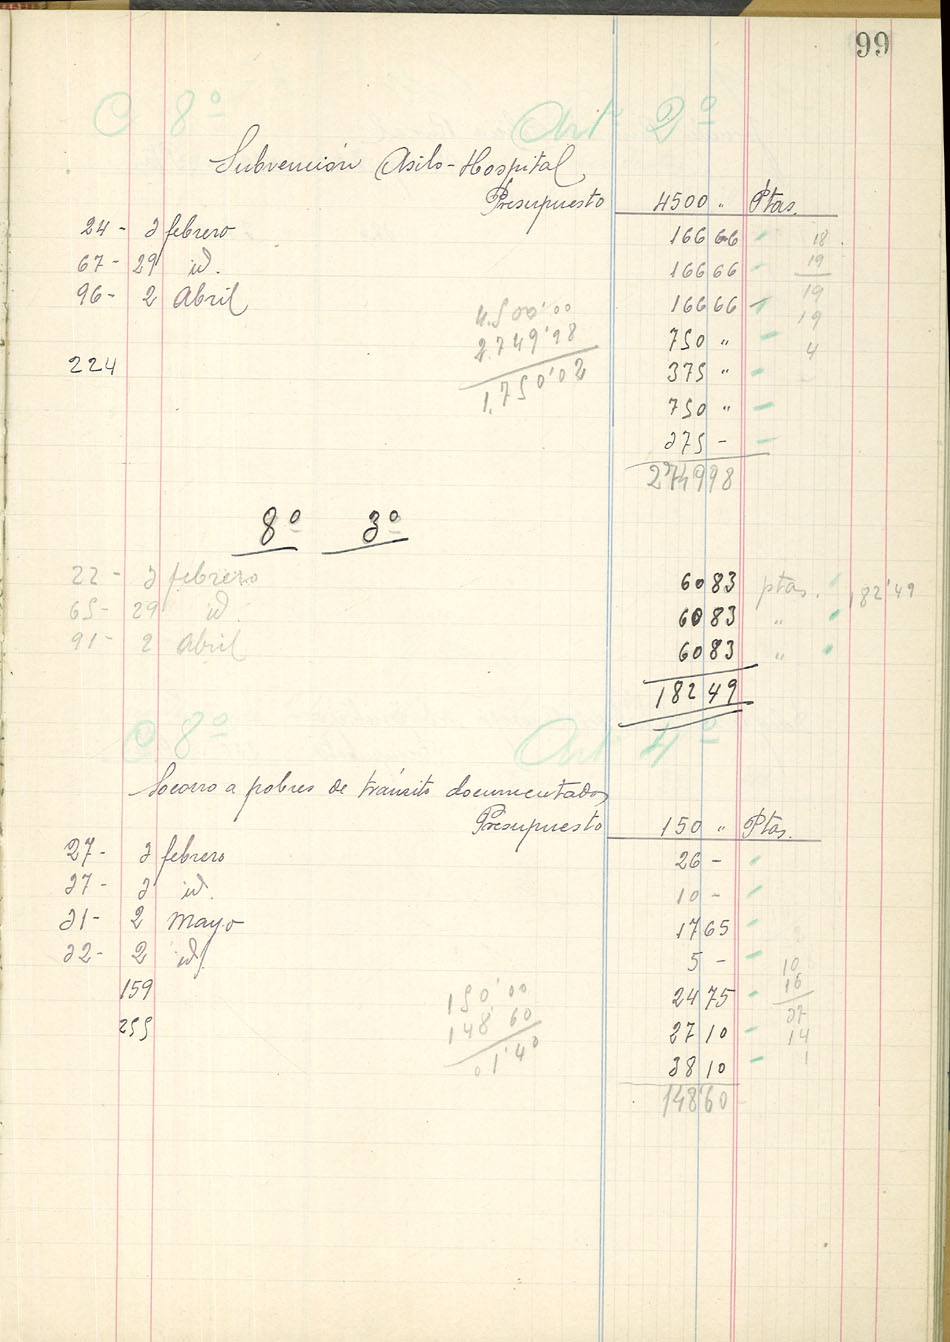 99
C 8º Art 2º
Subvención Asilo-Hospital
Presupuesto 4500 " Ptas.
24 - 3 febrero 166 66
67 - 29 id. 166 66
96 - 2 Abril 166 66
750 "
224 375 "
750 "
375 -
2749 98
4.500'00
2.749'98
1.750'02
18
19
19
19
4
8º 3º
22 - 3 febrero 60 83 ptas. 182'49
65 - 29 id. 60 83 "
91 - 2 Abril 60 83 "
182 49
C 8º Art 4º
Socorro a pobres de tránsito documentados
Presupuesto 150 " Ptas.
27 - 3 febrero 26 -
37 - 3 id. 10 -
31 - 2 Mayo 17 65
32 - 2 id. 5 -
159 24 75
255 27 10
38 10
148'60
150'00
148'60
01'40
10
16
37
14
1